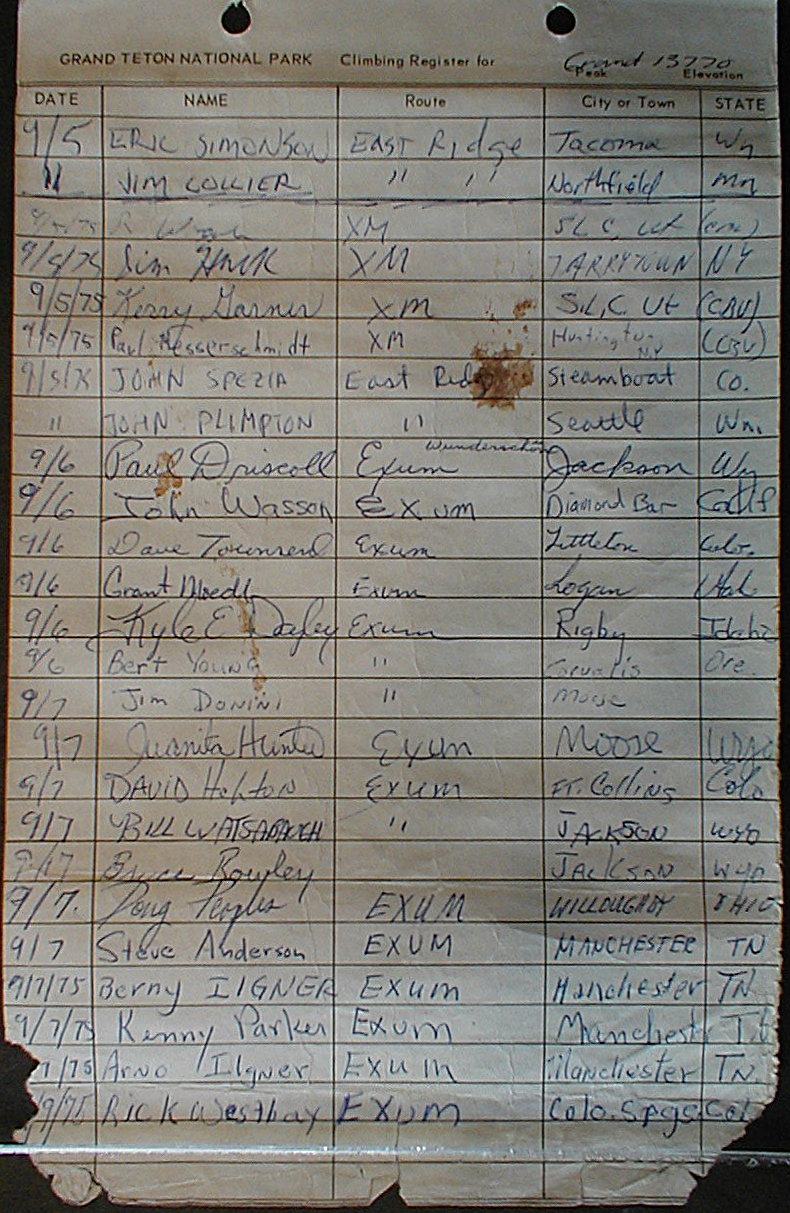 GRAND TETON NATIONAL PARK Climbing Register for Grand 13770
Peak Elevation
DATE NAME Route City or Town STATE
9/5 ERIC SIMONSON EAST Ridge Tacoma Wn
" JIM COLLIER " " Northfield Mn
R XM SLC, Ut
9/5/75 Jim XM TARRYTOWN NY
9/5/75 Kerry Garner XM S.L.C. Ut
9/5/75 Paul Messerschmidt XM Huntington, NY
9/5/75 JOHN SPEZIA East Ridge Steamboat Co.
" JOHN PLIMPTON " Seattle Wn.
9/6 Paul Driscoll Exum Wunderschön Jackson Wy
9/6 John Wasson Exum Diamond Bar Calif
9/6 Dave Townsend Exum Littleton Colo.
9/6 Grant Exum Logan Utah
9/6 Kyle E Exum Rigby Idaho
9/6 Bert YOUNG " Corvallis Ore.
9/7 Jim DONINI " Moose
9/7 Juanita Hunter Exum Moose Wyo
9/7 DAVID Exum FT. Collins Colo
9/7 BILL " JACKSON WYO
9/7 Bruce JACKSON WYO
9/7. Doug EXUM WILLOUGHBY OHIO
9/7 Steve Anderson EXUM MANCHESTER TN
9/7/75 Berny ILGNER Exum Manchester TN
9/7/75 Kenny Parker Exum Manchester TN
7/75 Arno Ilgner Exum Manchester TN.
9/75 Rick Westbay EXUM Colo. Spgs. Col